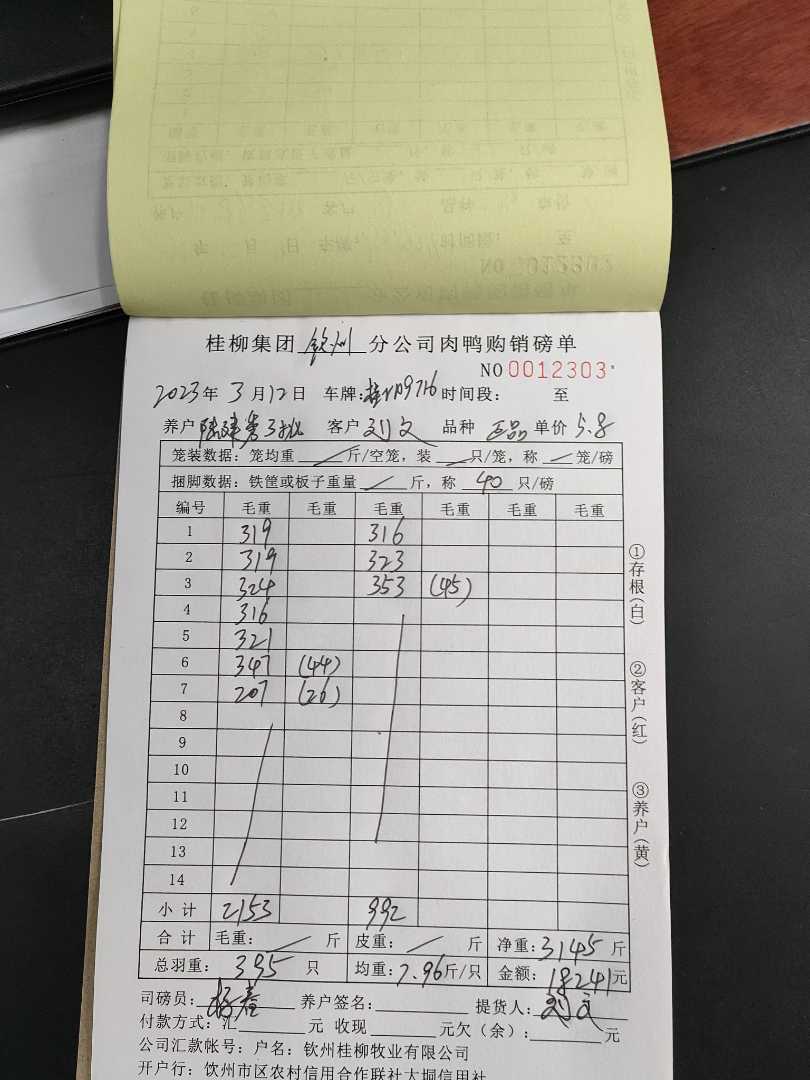 桂柳集团 钦州 分公司肉鸭购销磅单
NO 0012303
2023年 3月12日 车牌: 9716 时间段: 至
养户 陈建 3批 客户 刘文 品种 正品 单价 5.8
笼装数据: 笼均重 斤/空笼, 装 只/笼, 称 笼/磅
捆脚数据: 铁筐或板子重量 斤, 称 40 只/磅
编号 毛重 毛重 毛重 毛重 毛重 毛重
1 319 316
2 319 323
3 324 353 (45)
4 316
5 321
6 347 (44)
7 207 (26)
8
9
10
11
12
13
14
小计 2153 992
合计 毛重: 斤 皮重: 斤 净重: 3145 斤
总羽重: 395 只 均重: 7.96 斤/只 金额: 18241 元
司磅员: 杨春 养户签名: 提货人: 刘文
付款方式: 汇 元 收现 元欠(余): 元
公司汇款帐号: 户名: 钦州桂柳牧业有限公司
开户行: 钦州市区农村信用合作联社大垌信用社
①存根(白)
②客户(红)
③养户(黄)